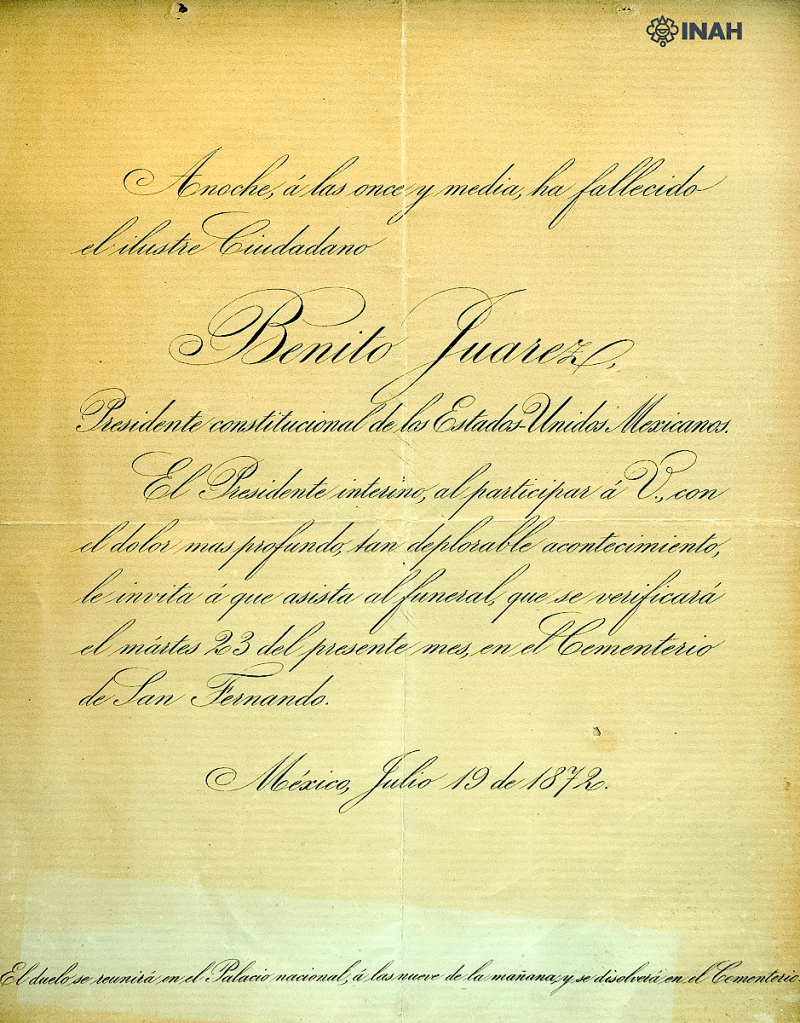 INAH
Anoche, á las once y media, ha fallecido
el ilustre Ciudadano
Benito Juarez,
Presidente constitucional de los Estados-Unidos Mexicanos.
El Presidente interino, al participar á V., con
el dolor mas profundo, tan deplorable acontecimiento,
le invita á que asista al funeral, que se verificará
el mártes 23 del presente mes, en el Cementerio
de San Fernando.
México, Julio 19 de 1872.
El duelo se reunirá en el Palacio nacional, á las nueve de la mañana, y se disolverá en el Cementerio.